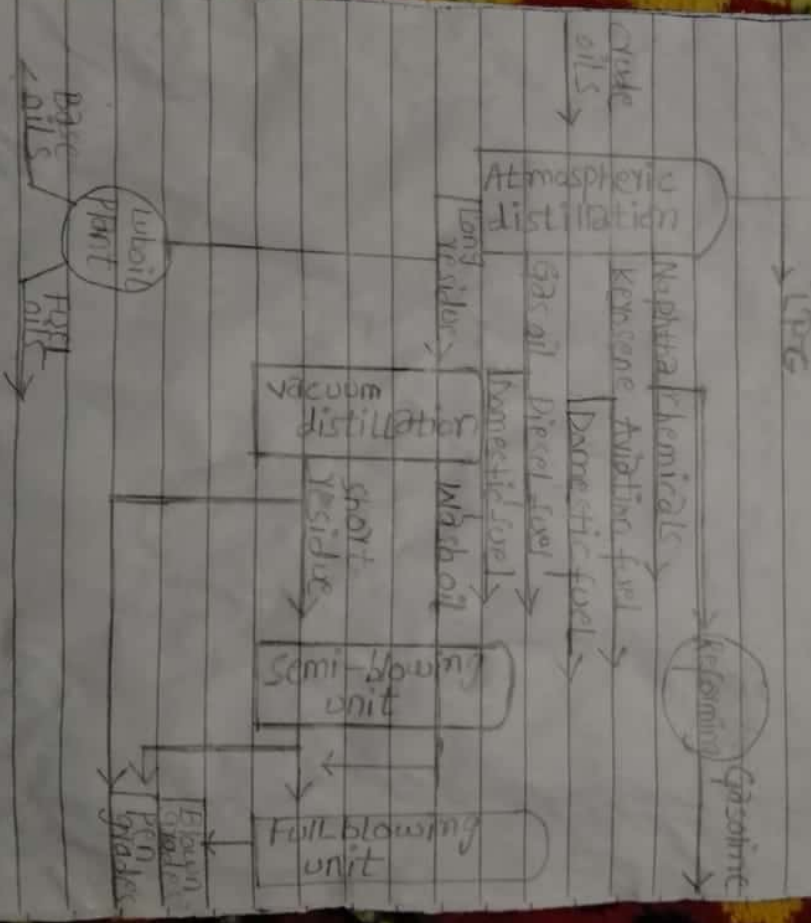 LPG
Crude
oils
Atmospheric
distillation
Naphtha chemicals
Reforming
Gasoline
Kerosene Aviation fuel
Domestic fuel
Gas oil Diesel fuel
Domestic fuel
Long
residue
Vacuum
distillation
Wash oil
Short
residue
Semi-blowing
unit
Full blowing
unit
Blown
grades
Pen
grades
Luboil
Plant
Base
oils
Fuel
oils